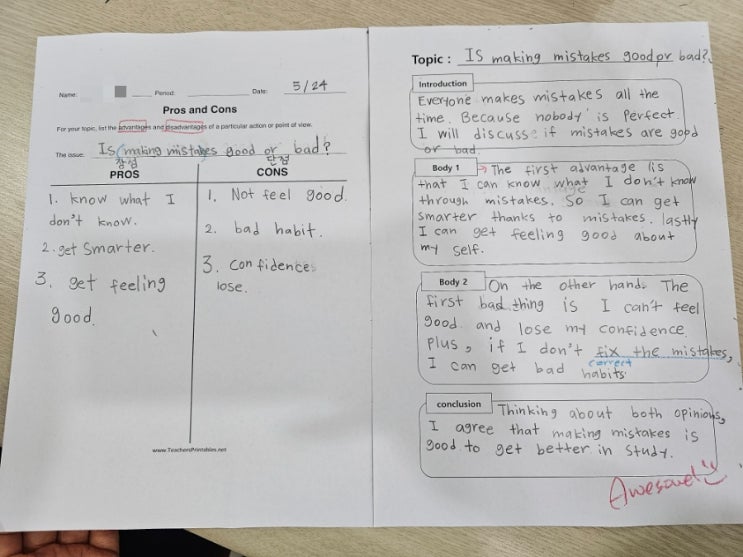 Name:
Period:
Date: 5/24
Pros and Cons
For your topic, list the advantages and disadvantages of a particular action or point of view.
The issue: Is making mistakes good or bad?
장점
단점
PROS
1. know what I
don't know.
2. get smarter.
3. get feeling
good.
CONS
1. Not feel good.
2. bad habit.
3. confidence
lose.
www.TeachersPrintables.net
Topic : IS making mistakes good or bad?
Introduction
Everyone makes mistakes all the
time. Because nobody is perfect.
I will discuss if mistakes are good
or bad.
Body 1
The first advantage is
that I can know what I don't know
through mistakes. So I can get
smarter thanks to mistakes. lastly
I can get feeling good about
my self.
Body 2
On the other hand. The
first bad thing is I can't feel
good and lose my confidence.
plus, if I don't fix the mistakes,
correct
I can get bad habits.
conclusion
Thinking about both opinions,
I agree that making mistakes is
good to get better in study.
Awesome!